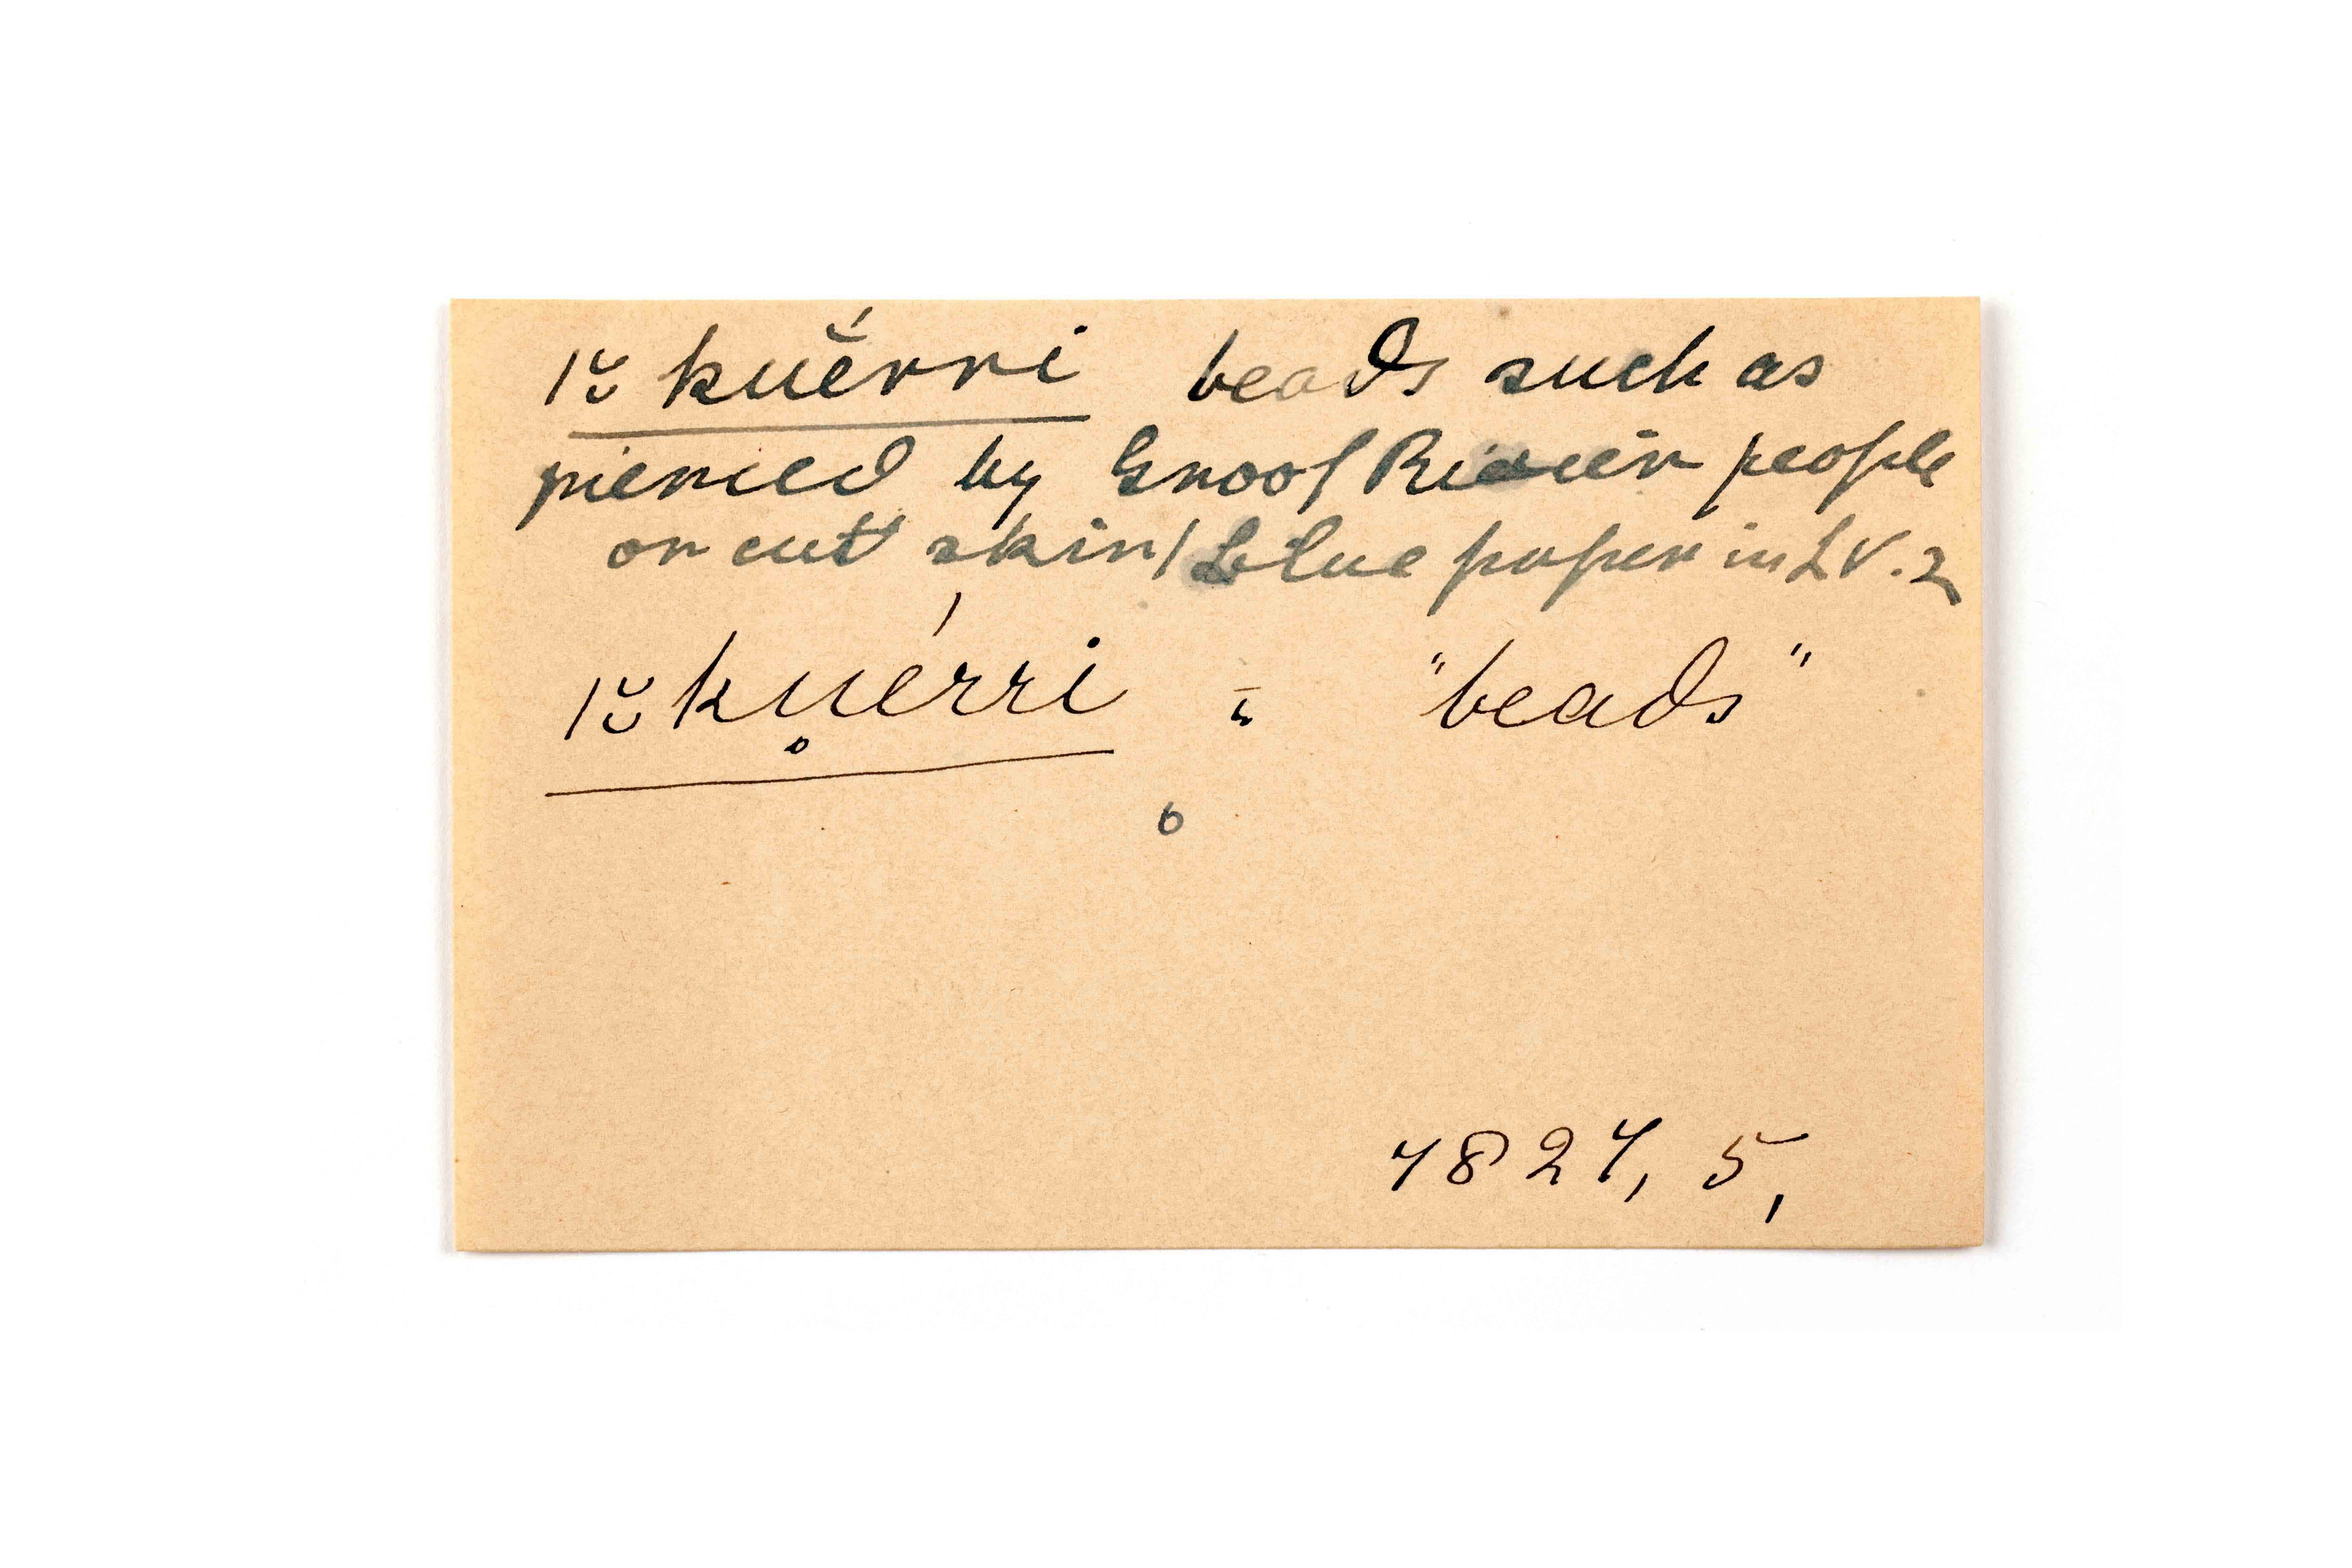 |˘˘ kuĕ́rri beads such as
pierced by Groot Rivier people
on cut skin/ blue paper in L V. 2
|˘˘ ku̥érri = "beads"
4824, 5,